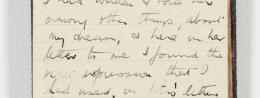 I had written & told her
among other things, about
my dream, & here in her
letter to me I found the
expression that I
had used, in 's letter